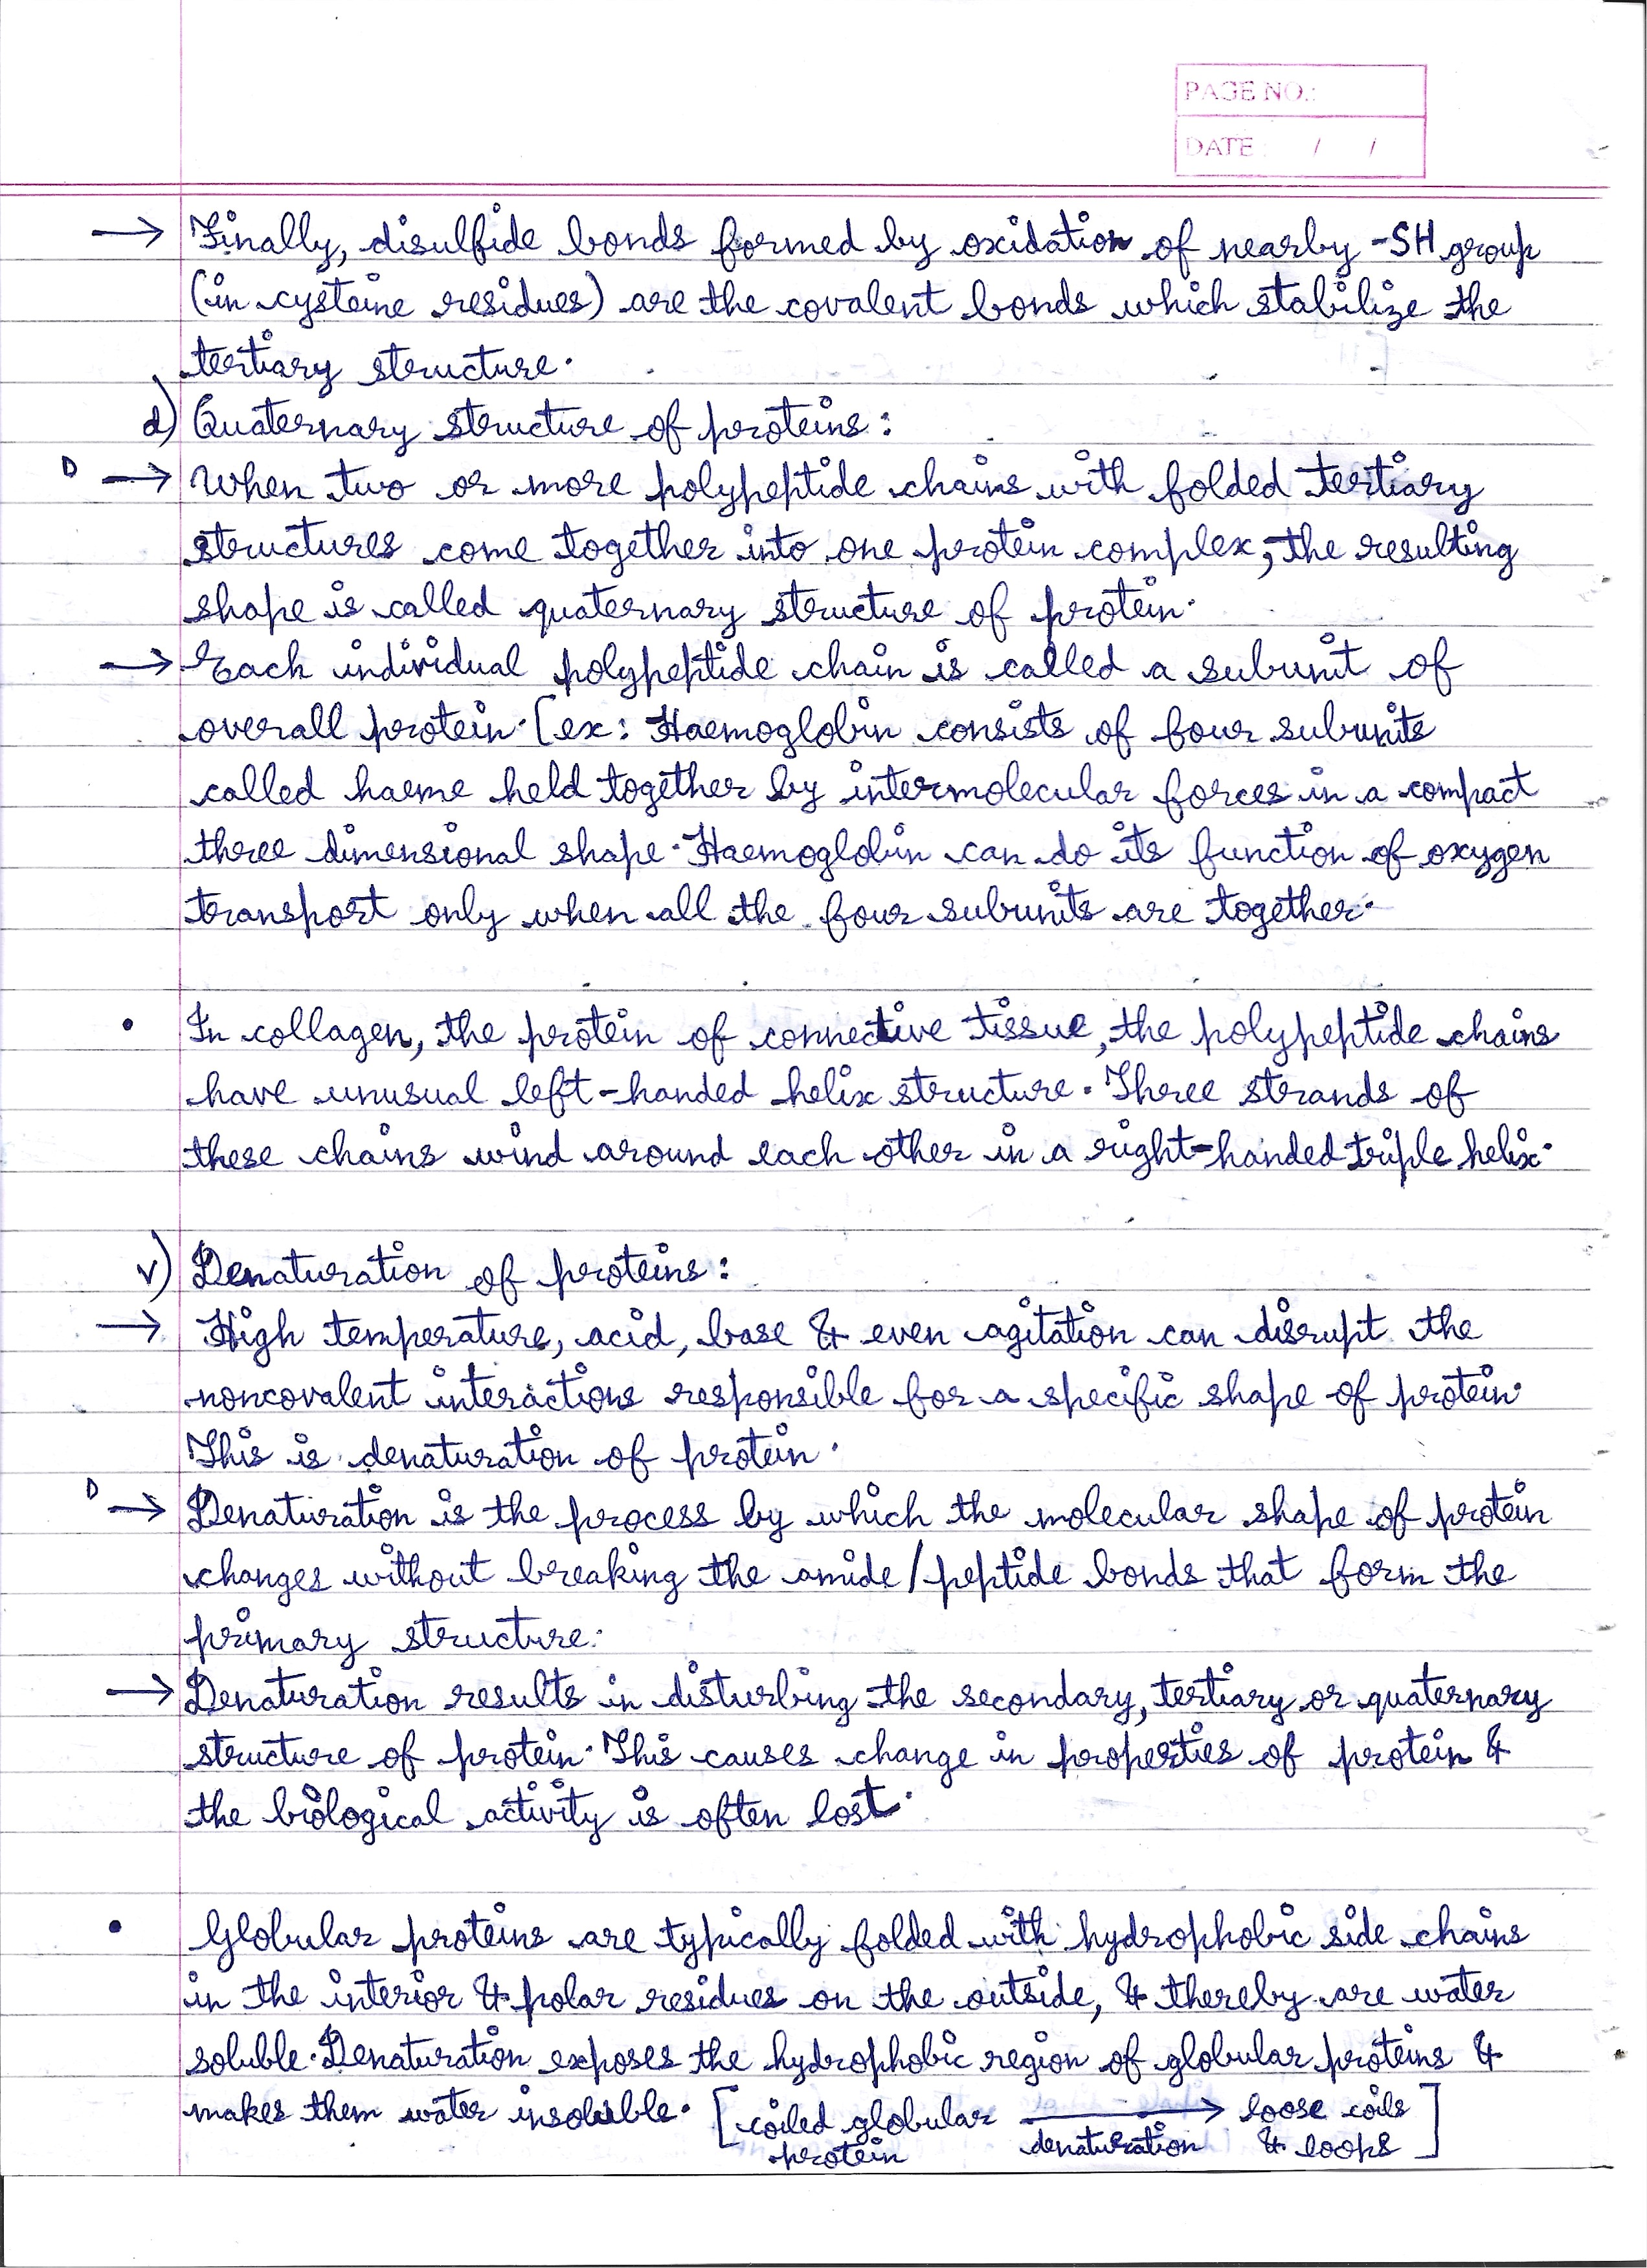 PAGE NO.:
DATE : / /
→ Finally, disulfide bonds formed by oxidation of nearby -SH group
(in cysteine residues) are the covalent bonds which stabilize the
tertiary structure.
d) Quaternary structure of proteins:
D → When two or more polypeptide chains with folded tertiary
structures come together into one protein complex, the resulting
shape is called quaternary structure of protein.
→ Each individual polypeptide chain is called a subunit of
overall protein. [ex: Haemoglobin consists of four subunits
called haeme held together by intermolecular forces in a compact
three dimensional shape. Haemoglobin can do its function of oxygen
transport only when all the four subunits are together.
• In collagen, the protein of connective tissue, the polypeptide chains
have unusual left-handed helix structure. Three strands of
these chains wind around each other in a right-handed triple helix.
v) Denaturation of proteins:
→ High temperature, acid, base & even agitation can disrupt the
noncovalent interactions responsible for a specific shape of protein.
This is denaturation of protein.
D → Denaturation is the process by which the molecular shape of protein
changes without breaking the amide/peptide bonds that form the
primary structure.
→ Denaturation results in disturbing the secondary, tertiary or quaternary
structure of protein. This causes change in properties of protein &
the biological activity is often lost.
• Globular proteins are typically folded with hydrophobic side chains
in the interior & polar residues on the outside, & thereby are water
soluble. Denaturation exposes the hydrophobic region of globular proteins &
makes them water insoluble. [coiled globular → loose coils]
protein denaturation & loops